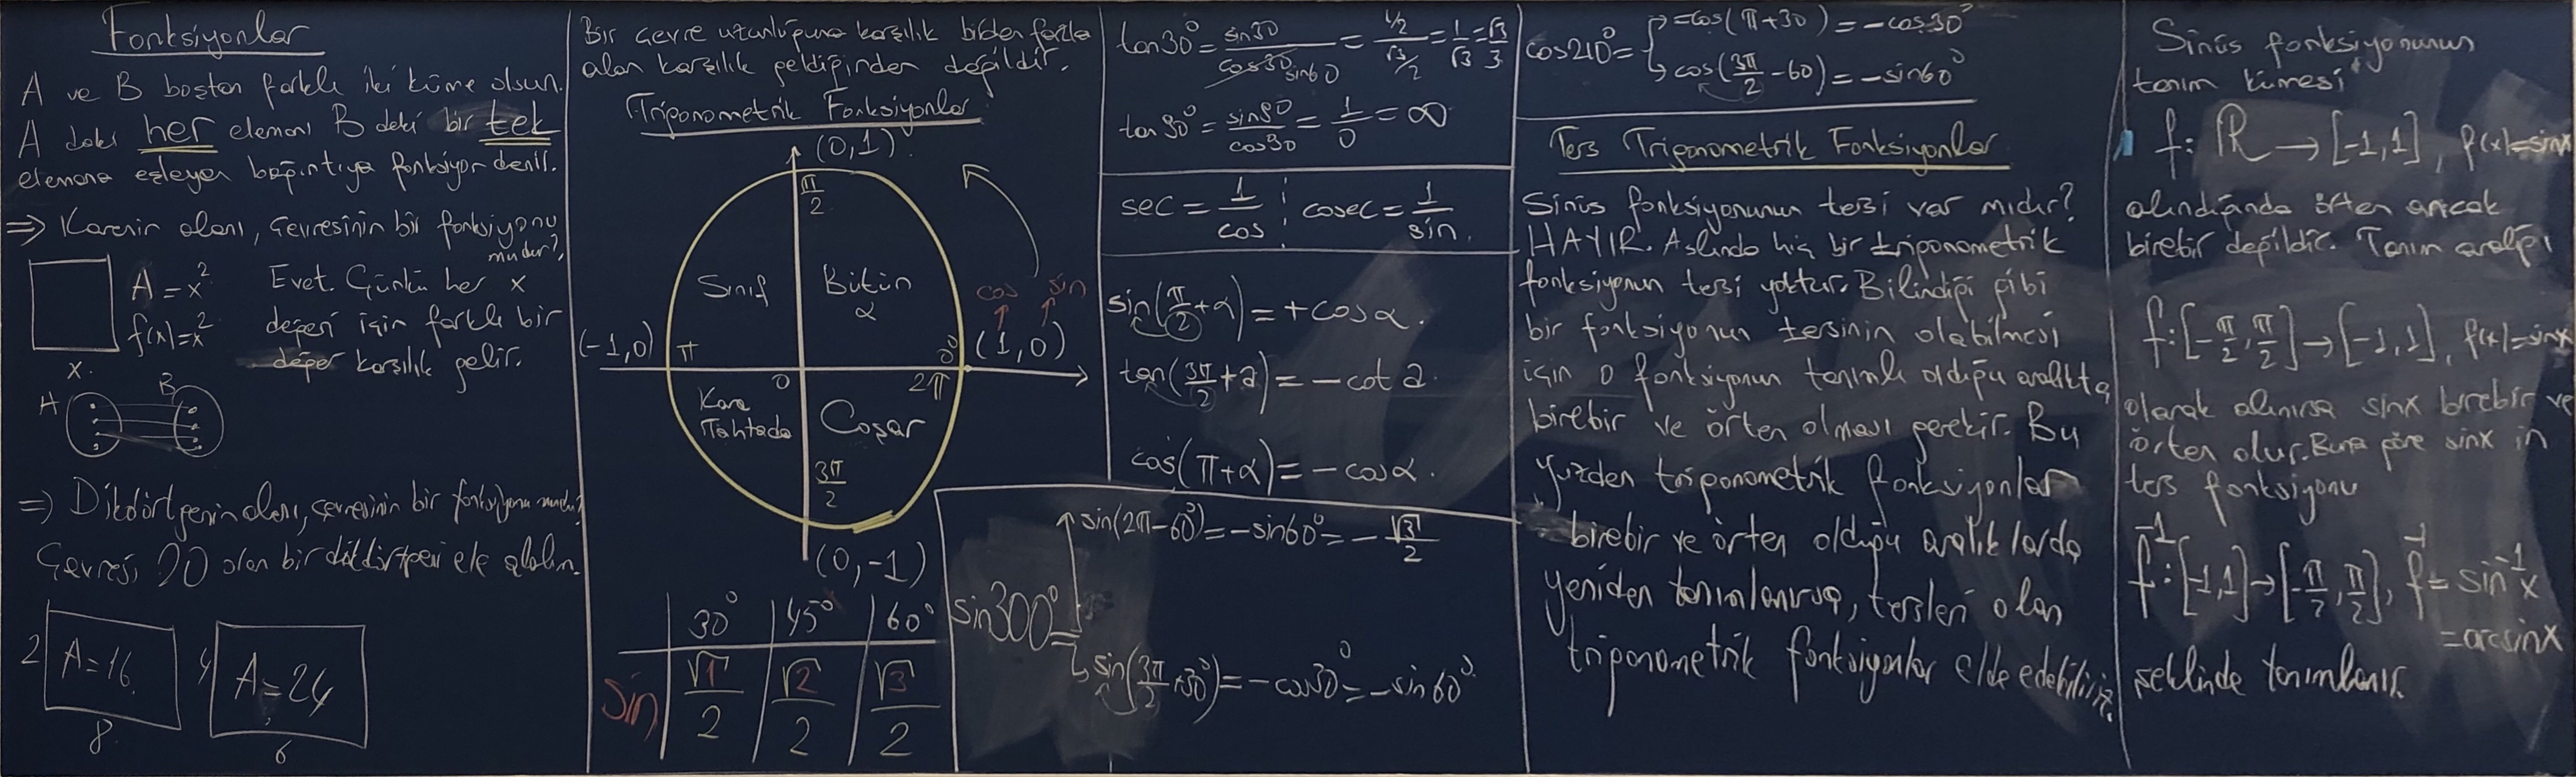 Fonksiyonlar
A ve B boştan farklı iki küme olsun.
A daki her elemanı B deki bir tek
elemana eşleyen bağıntıya fonksiyon denir.
⇒ Karenin alanı, çevresinin bir fonksiyonu
mudur?
A = x²
f(x)=x²
x.
Evet. Çünkü her x
değeri için farklı bir
değer karşılık gelir.
A B
⇒ Dikdörtgenin alanı, çevresinin bir fonksiyonu mudur?
Çevresi 20 olan bir dikdörtgeni ele alalım.
2 A=16
8
4 A=24
6
Bir çevre uzunluğuna karşılık birden fazla
alan karşılık geldiğinden değildir.
Trigonometrik Fonksiyonlar
(0,1)
π/2
Sınıf
Bütün
α
cos sin
(-1,0) π 0° (1,0)
0 2π
Kara
Tahtada
Coşar
3π/2
(0,-1)
30° 45° 60°
sin √1/2 √2/2 √3/2
tan30° = sin30/cos30 sin60 = 1/2/√3/2 = 1/√3 = √3/3
tan90° = sin90/cos90 = 1/0 = ∞
sec = 1/cos ; cosec = 1/sin.
sin(π/2+α) = +cosα.
tan(3π/2+a) = -cot a.
cos(π+α) = -cosα.
sin300° =
sin(2π-60°) = -sin60° = -√3/2
sin(3π/2+30°) = -cos30° = -sin60°
cos210° =
=cos(π+30) = -cos30°
cos(3π/2-60) = -sin60°
Ters Trigonometrik Fonksiyonlar
Sinüs fonksiyonunun tersi var mıdır?
HAYIR. Aslında hiç bir trigonometrik
fonksiyonun tersi yoktur. Bilindiği gibi
bir fonksiyonun tersinin olabilmesi
için o fonksiyonun tanımlı olduğu aralıkta
birebir ve örten olması gerekir. Bu
yüzden trigonometrik fonksiyonlar
birebir ve örten olduğu aralıklarda
yeniden tanımlanırsa, tersleri olan
trigonometrik fonksiyonlar elde edebiliriz.
Sinüs fonksiyonunun
tanım kümesi
f: ℝ → [-1,1], f(x)=sinx
alındığında örten ancak
birebir değildir. Tanım aralığı
f: [-π/2, π/2] → [-1,1], f(x)=sinx
olarak alınırsa sinx birebir ve
örten olur. Buna göre sinx in
ters fonksiyonu
f⁻¹: [-1,1] → [-π/2, π/2], f⁻¹ = sin⁻¹x
=arcsinx
şeklinde tanımlanır.